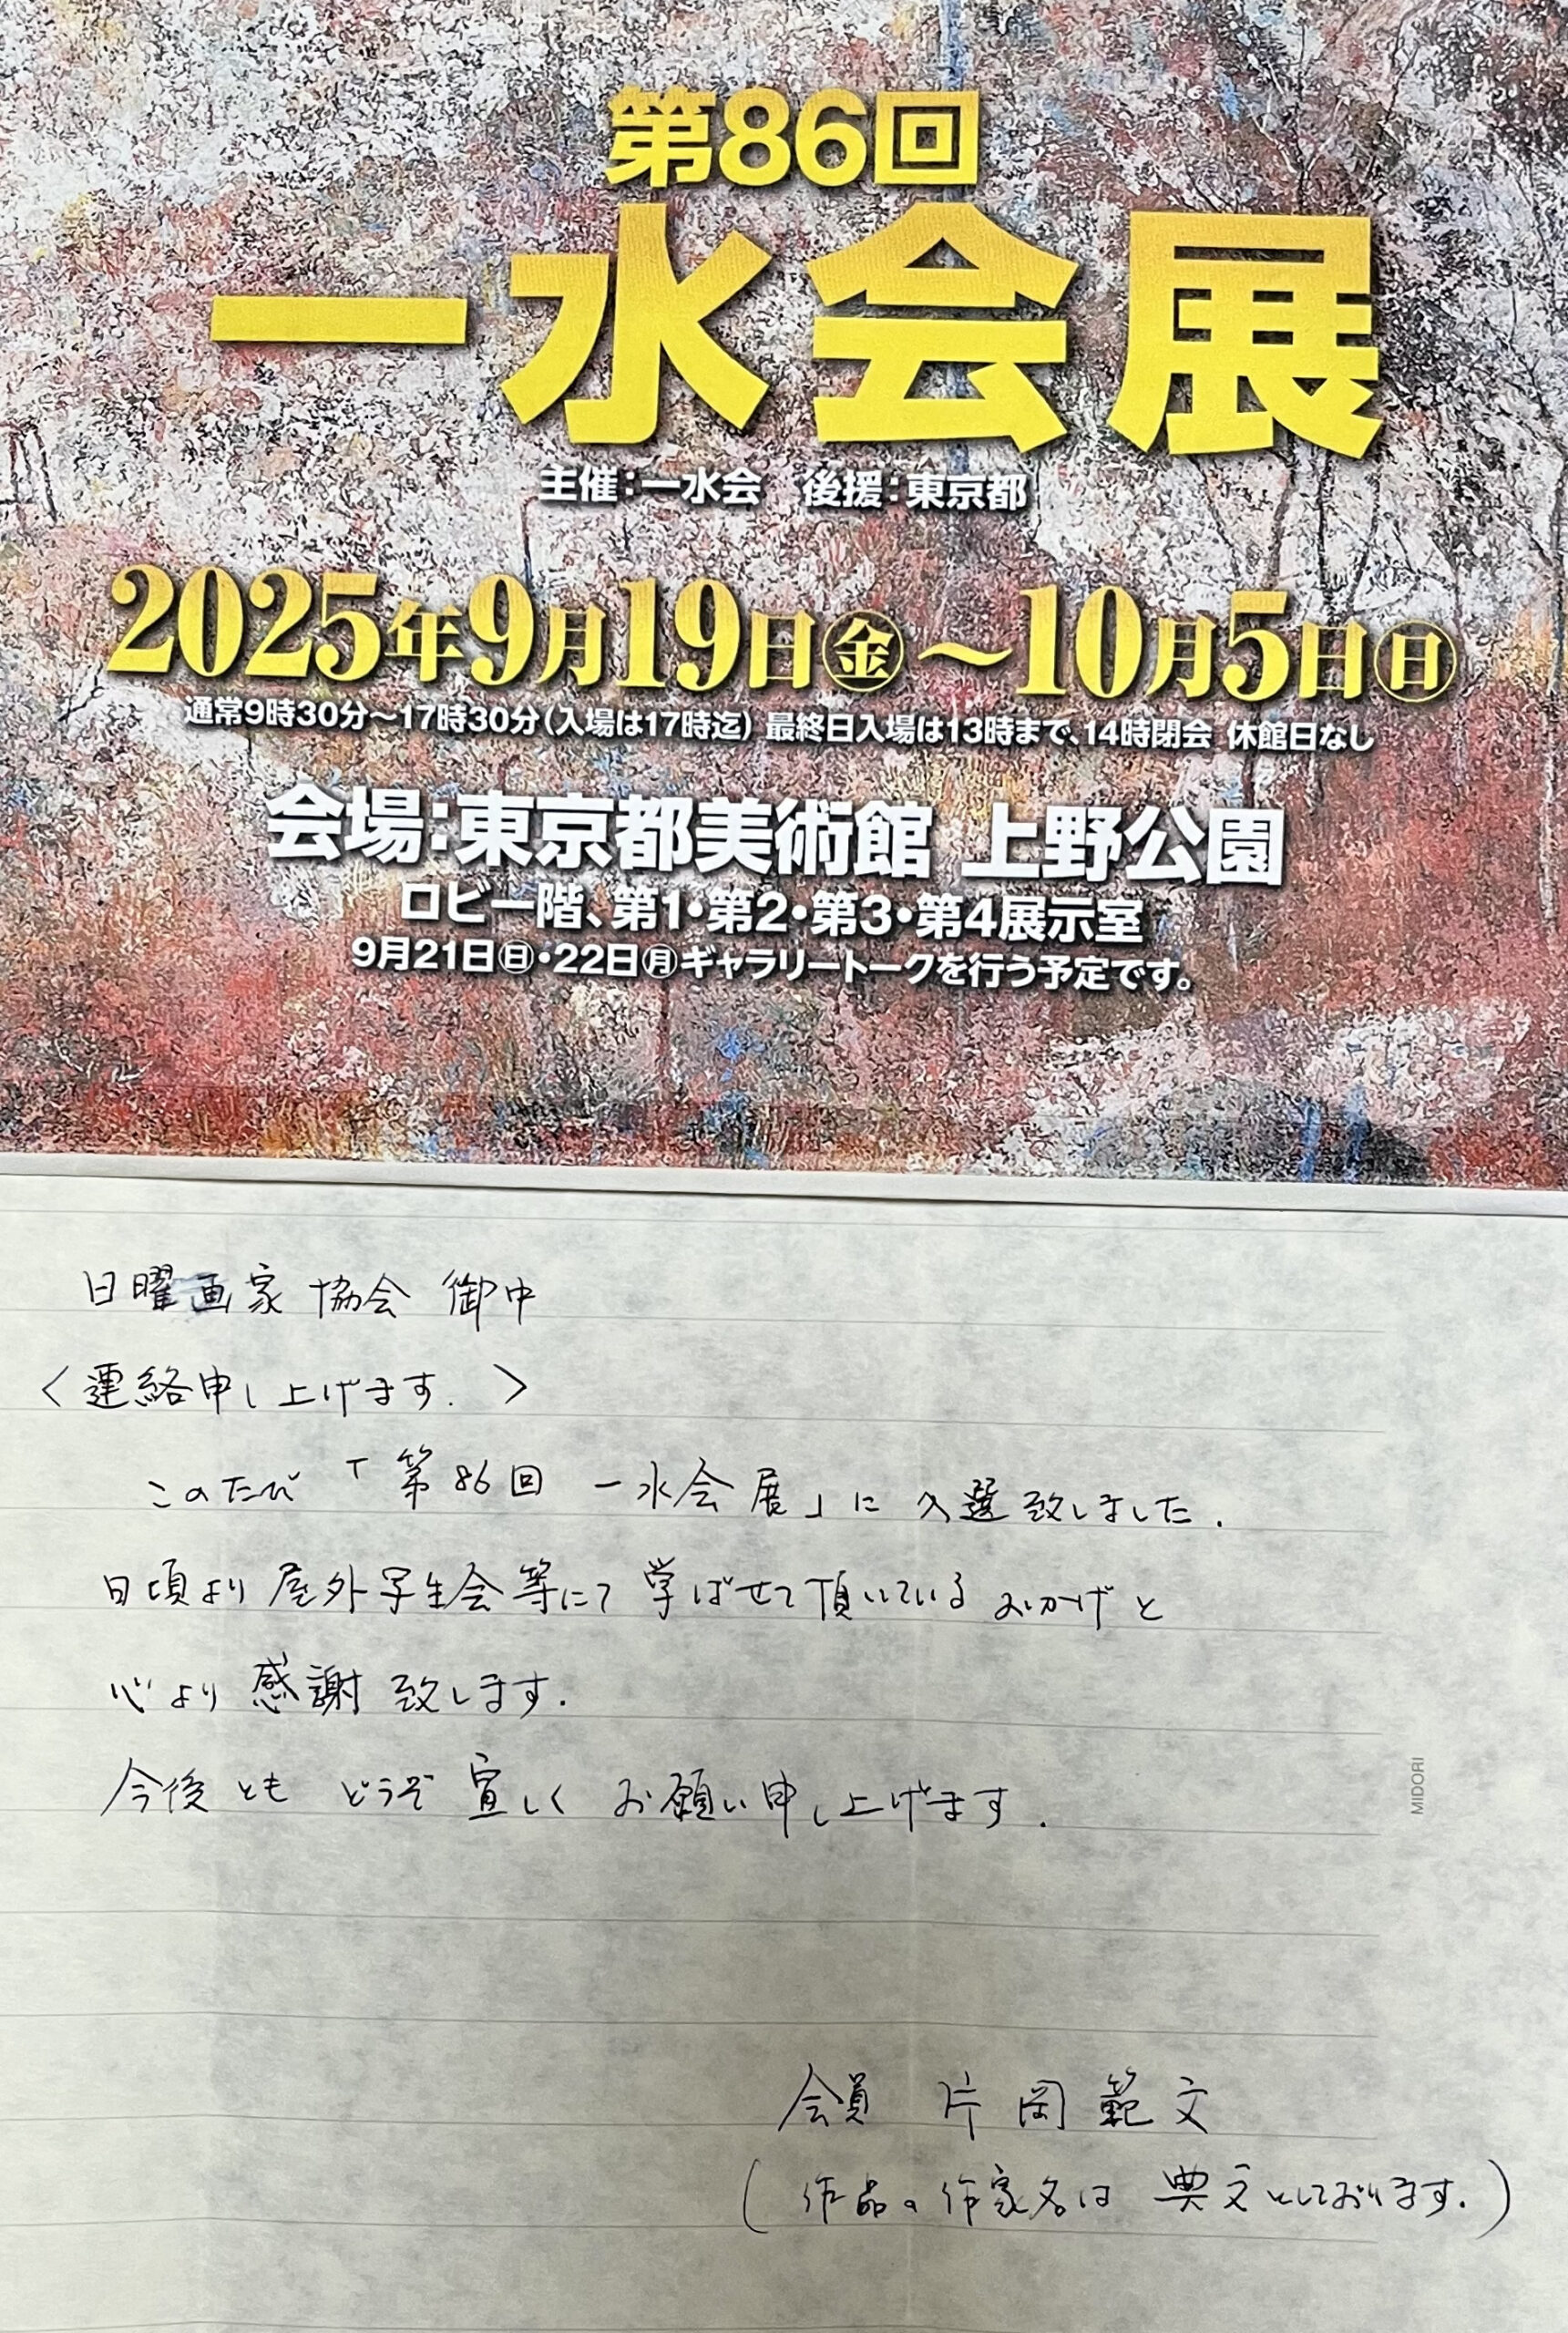 第86回
一水会展
主催：一水会　後援：東京都
2025年9月19日㊎～10月5日㊐
通常9時30分～17時30分（入場は17時迄） 最終日入場は13時まで、14時閉会 休館日なし
会場：東京都美術館 上野公園
ロビー階、第1・第2・第3・第4展示室
9月21日㊐・22日㊊ギャラリートークを行う予定です。
日曜画家協会 御中
〈連絡申し上げます.〉
このたび「第86回 一水会展」に入選致しました.
日頃より屋外写生会等にて学ばせて頂いているおかげと
心より感謝致します.
今後ともどうぞ宜しくお願い申し上げます.
MIDORI
会員 片岡範文
(作品の作家名は 典文としております.)